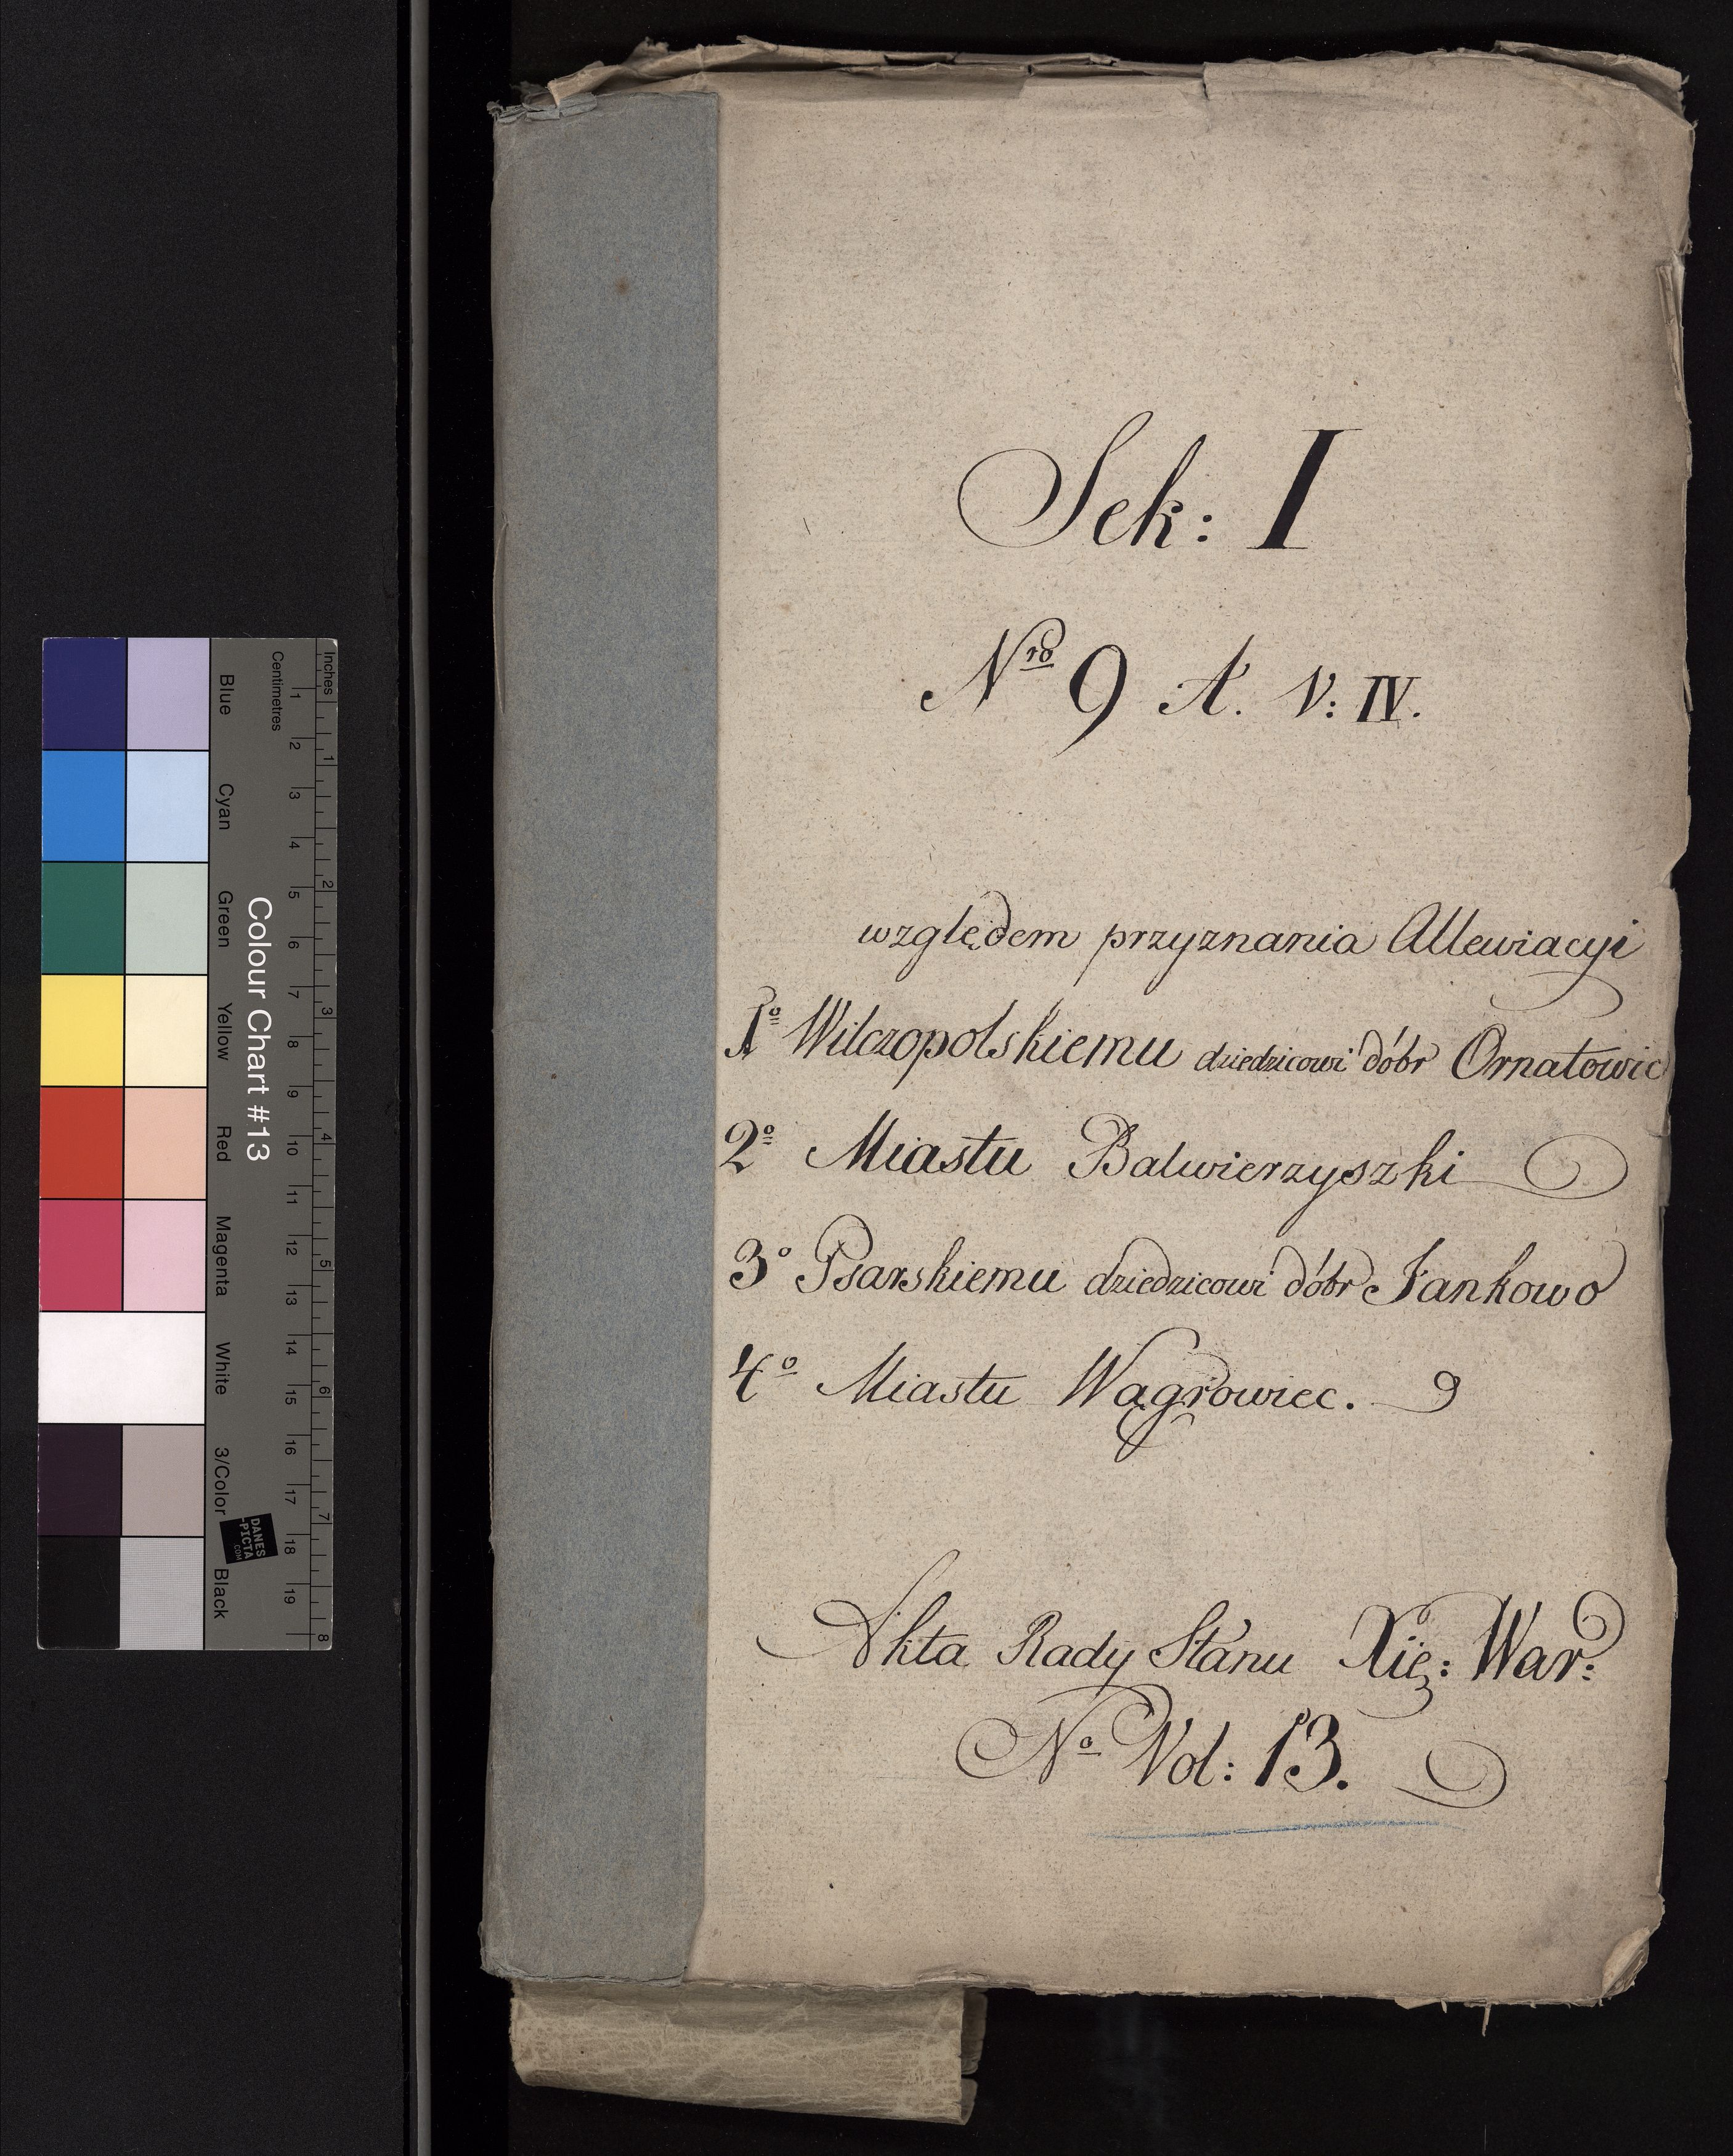 Sek: I
Nro 9 A. V: IV.
względem przyznania Allewiacyi
1o Wilczopolskiemu dziedzicowi dóbr Ornatowic
2o Miastu Balwierzyszki
3o Psarskiemu dziedzicowi dóbr Jankowo
4o Miastu Wągrowiec.
Akta Rady Stanu Xię: War:
No Vol: 13.
Colour Chart #13
Blue Cyan Green Yellow Red Magenta White 3/Color Black
Inches 1 2 3 4 5 6 7 8
Centimetres 1 2 3 4 5 6 7 8 9 10 11 12 13 14 15 16 17 18 19
DANES
-PICTA
.COM